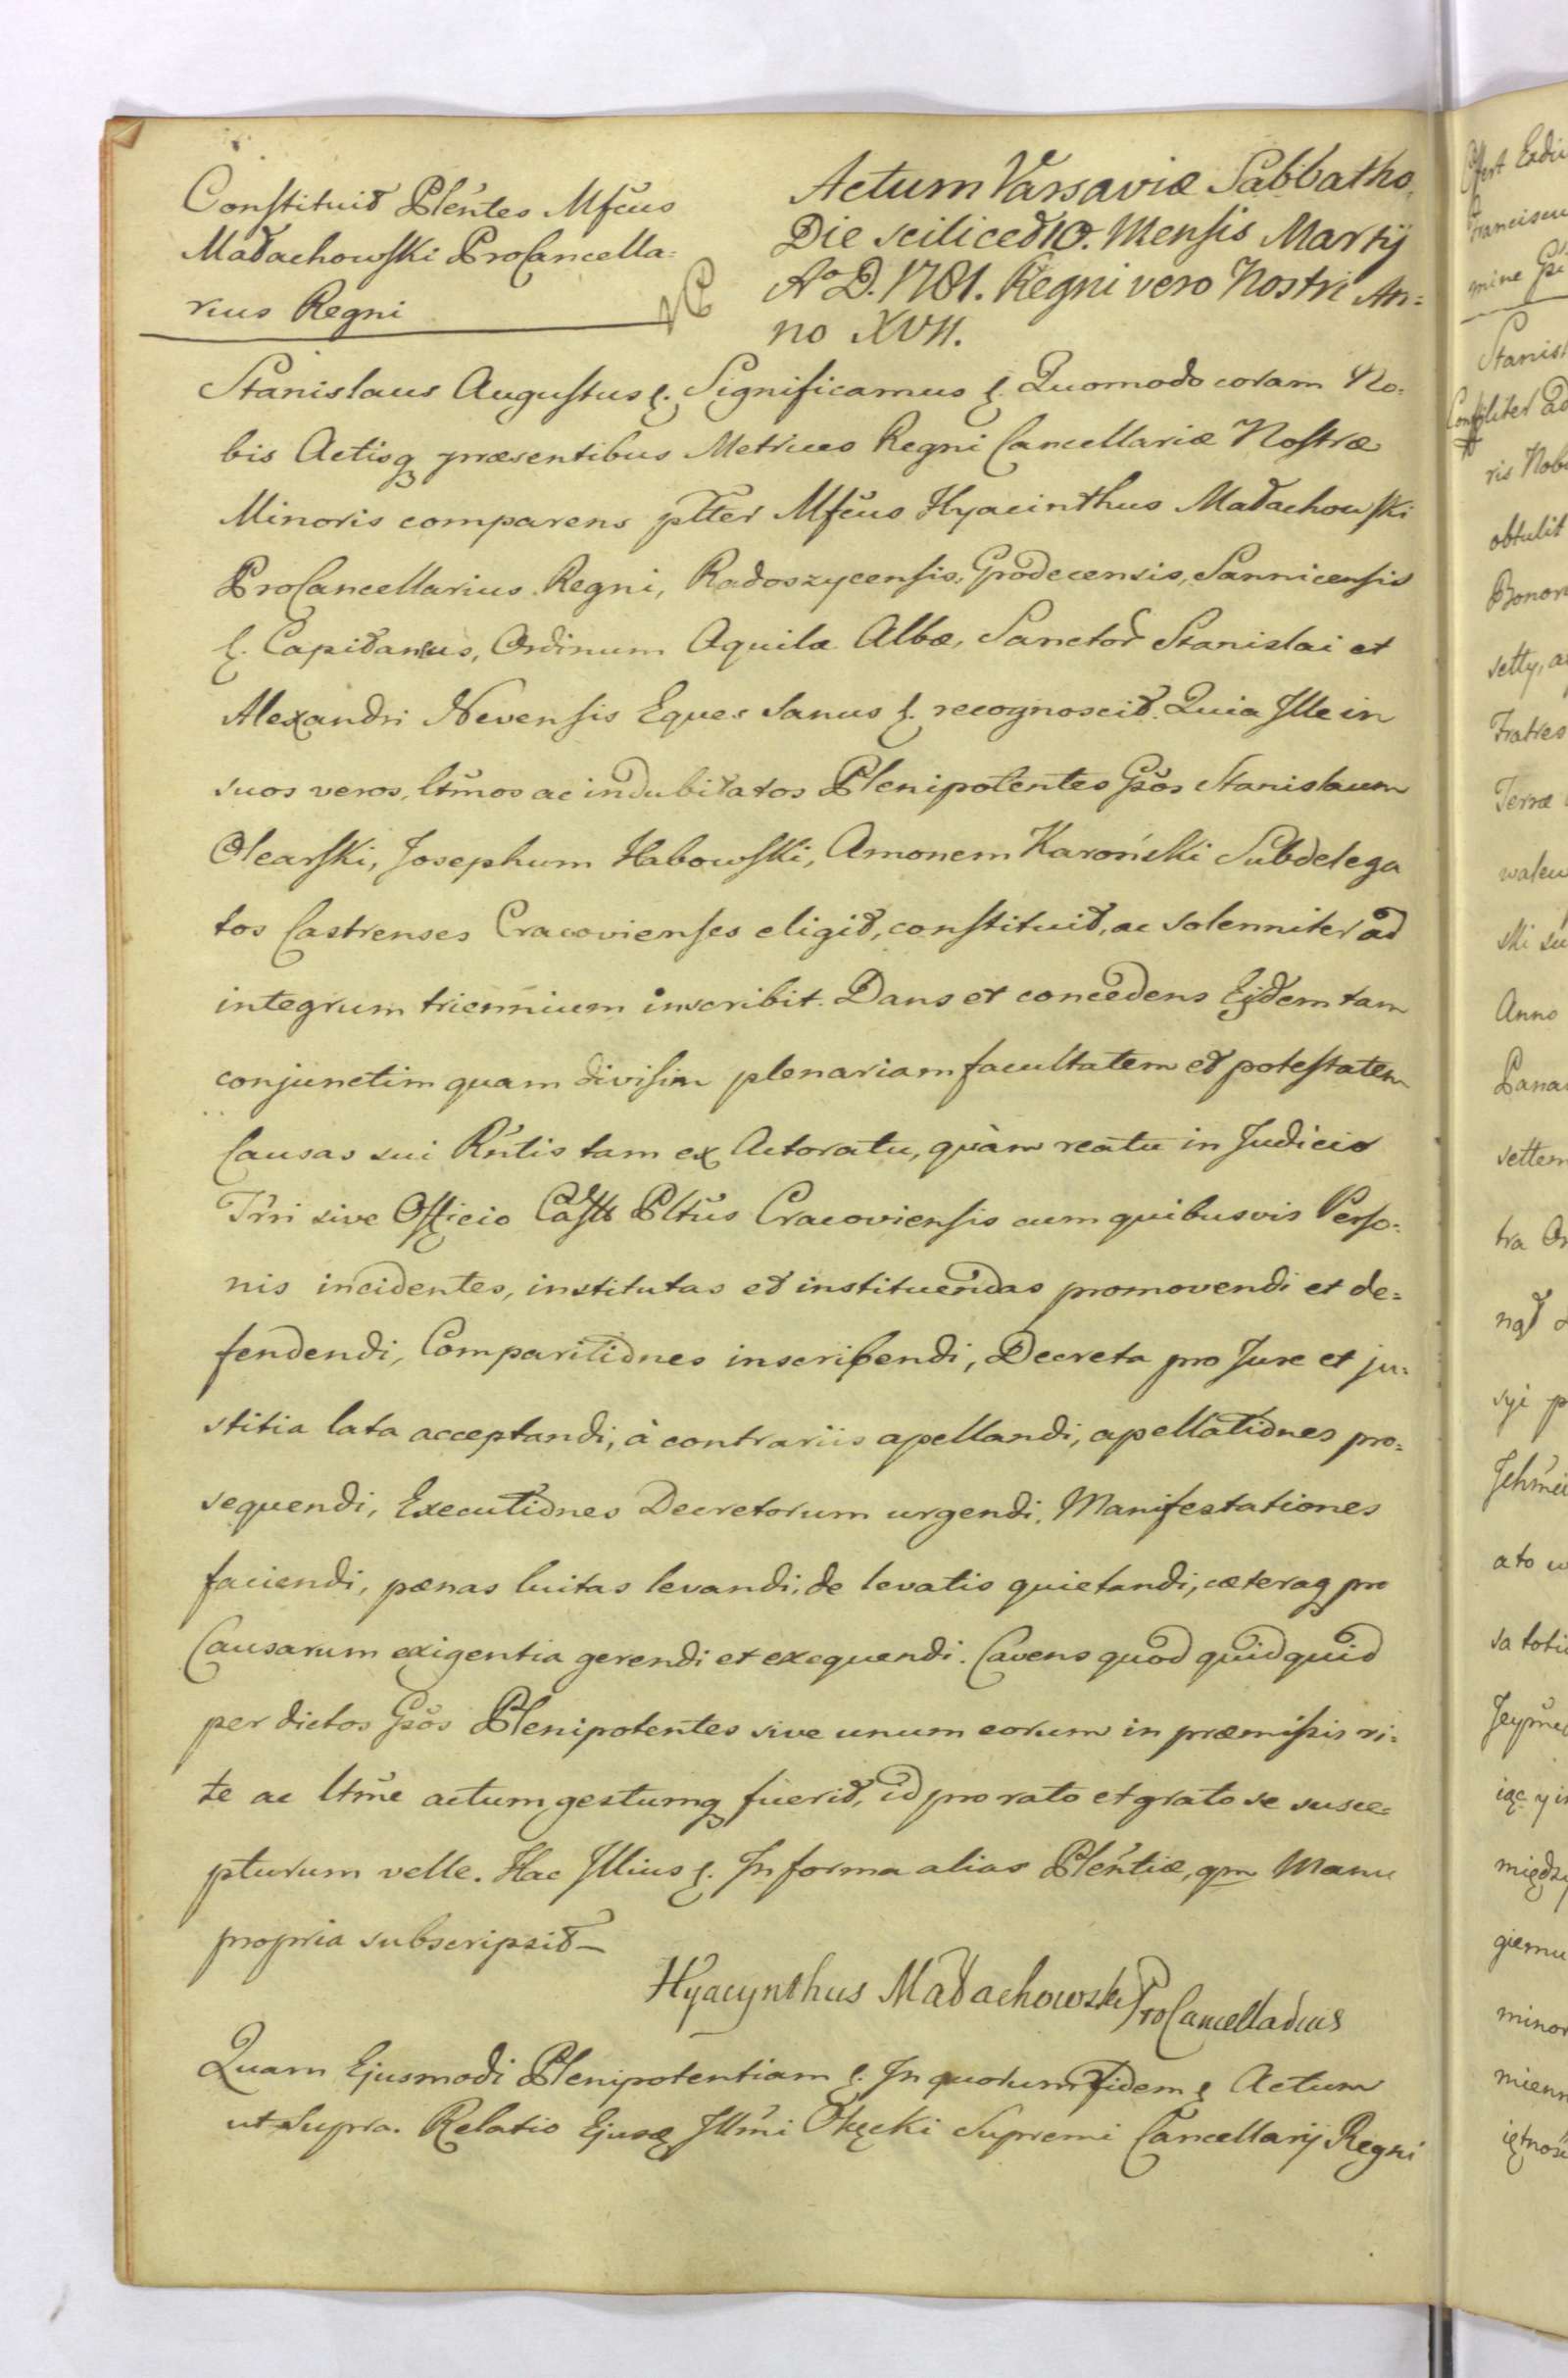 Constituit Plentes Mfcus
Małachowski ProCancella=
rius Regni
Actum Varsaviæ Sabbatho
Die scilicet 10. Mensis Martij
Aº D. 1781. Regni vero Nostri An=
no XVII.
Stanislaus Augustus &. Significamus &. Quomodo coram No=
bis Actisq præsentibus Metrices Regni Cancellariæ Nostræ
Minoris comparens pltter Mfcus Hyacinthus Małachowski
ProCancellarius Regni, Radoszycensis, Grodecensis, Sannicensis
&. Capitaneus, Ordinum Aquilæ Albæ, Sanctor Stanislai et
Alexandri Nevensis Eques Sanus &. recognoscit. Quia Ille in
suos veros, ltmos ac indubitatos Plenipotentes Gsos Stanislaum
Olearski, Josephum Habowski, Amonem Karoński Subdelega
tos Castrenses Cracovienses eligit, constituit, ac solenniter ad
integrum triennium inscribit. Dans et concedens Eijdem tam
conjunctim quam divisim plenariam facultatem et potestatem
Causas sui Rntis tam ex Actoratu, quàm reatu in Judicio
Trri sive Officio Castr Pltus Cracoviensis cum quibusvis Perso=
nis incidentes, institutas et instituendas promovendi et de=
fendendi, Comparitiones inscribendi, Decreta pro Jure et ju=
stitia lata acceptandi, à contrariis apellandi, apellationes pro=
sequendi, Executiones Decretorum urgendi, Manifestationes
faciendi, pænas luitas levandi, de levatis quietandi, cæteraq pro
Causarum exigentia gerendi et exequendi. Cavens quod quidquid
per dictos Gsos Plenipotentes sive unum eorum in præmissis ri=
te ac ltme actum gestumq fuerit, id pro rato et grato se susce=
pturum velle. Hac Illius &. In forma alias Plentiæ, qm Manu
propria subscripsit –
Hyacynthus Małachowski ProCancellarius
Quam Ejusmodi Plenipotentiam &. In quorum fidem & Actum
ut Supra. Relatio Ejusq Illmi Okęcki Supremi Cancellarij Regni